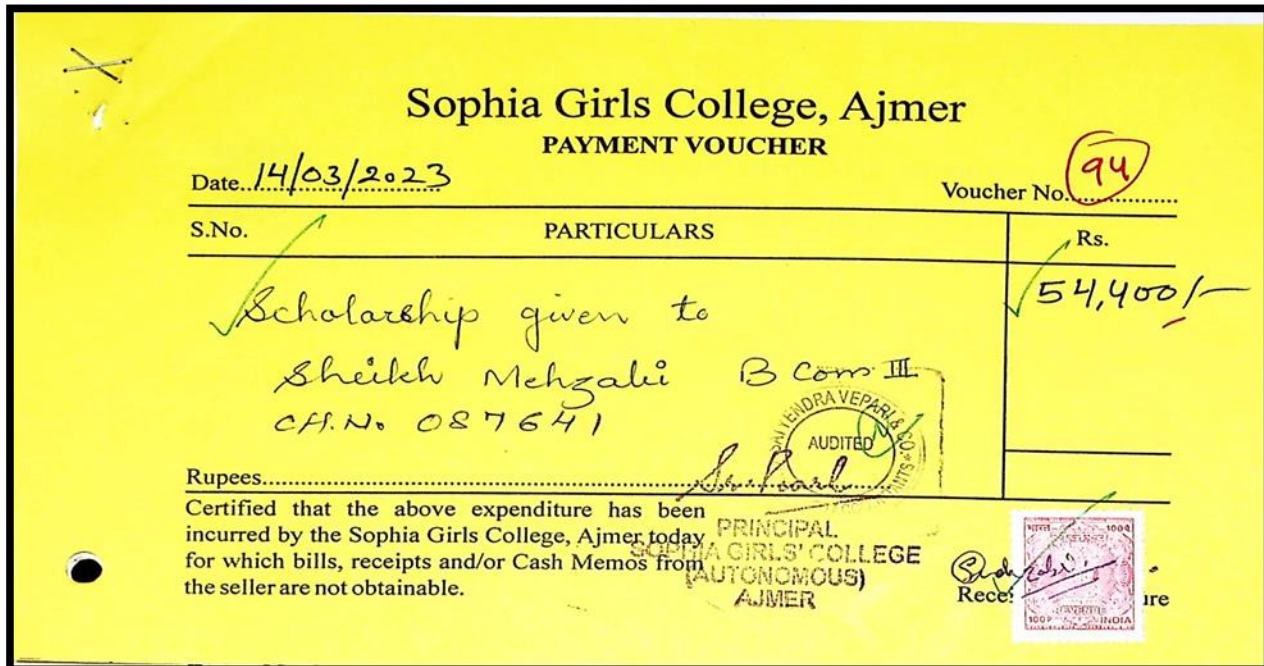 Sophia Girls College, Ajmer
PAYMENT VOUCHER
Date..14/03/2023
Voucher No. 94
S.No. PARTICULARS Rs.
Scholarship given to 54,400/-
Sheikh Mehzabi B Com III
CH.No 087641
VEPARI & CO
AUDITED
Rupees
Certified that the above expenditure has been
incurred by the Sophia Girls College, Ajmer today
for which bills, receipts and/or Cash Memos from
the seller are not obtainable.
PRINCIPAL
SOPHIA GIRLS' COLLEGE
(AUTONOMOUS)
AJMER
भारत 100
REVENUE
100 INDIA